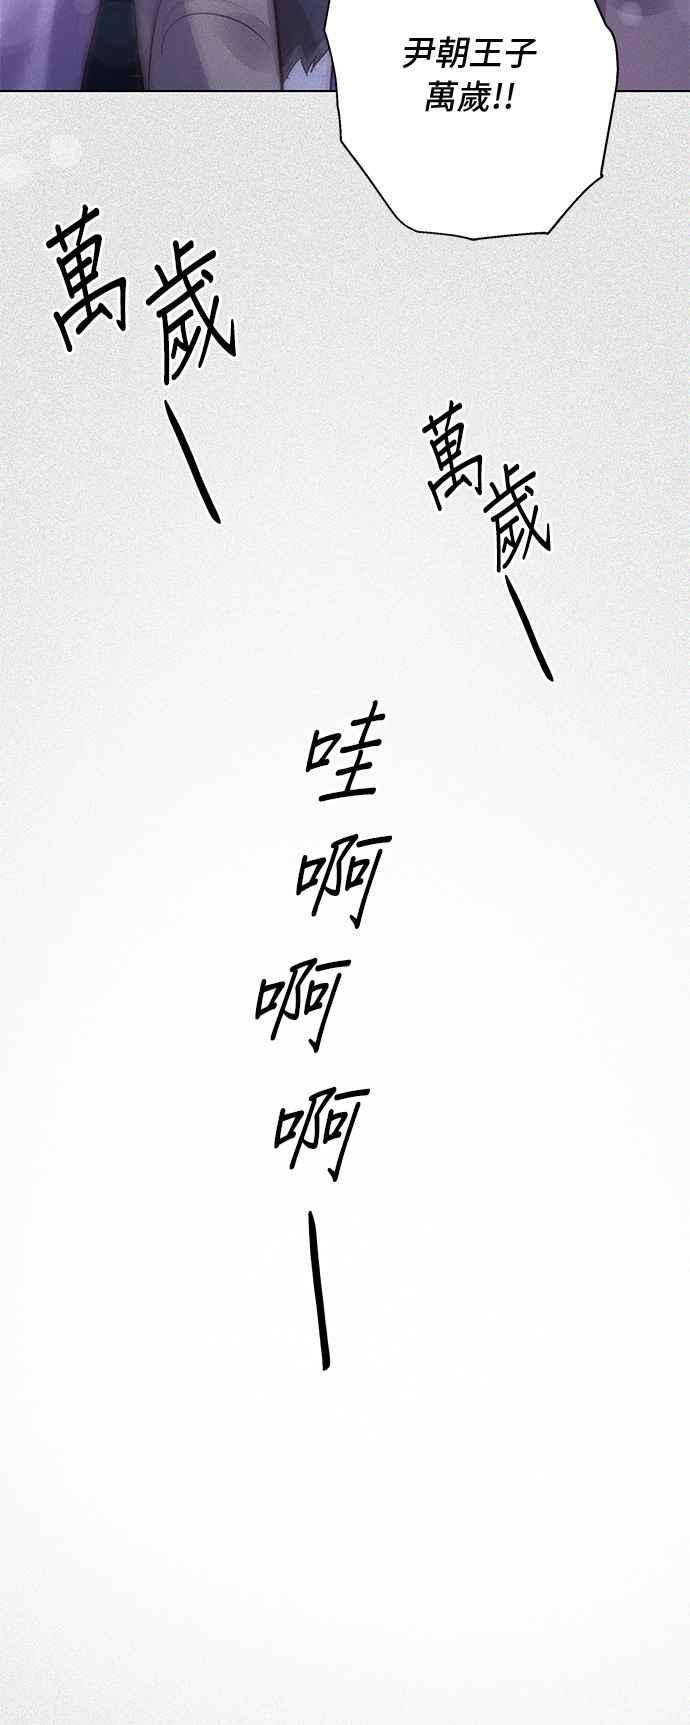 尹朝王子
萬歲!!
萬歲—
萬歲—
哇啊啊啊—